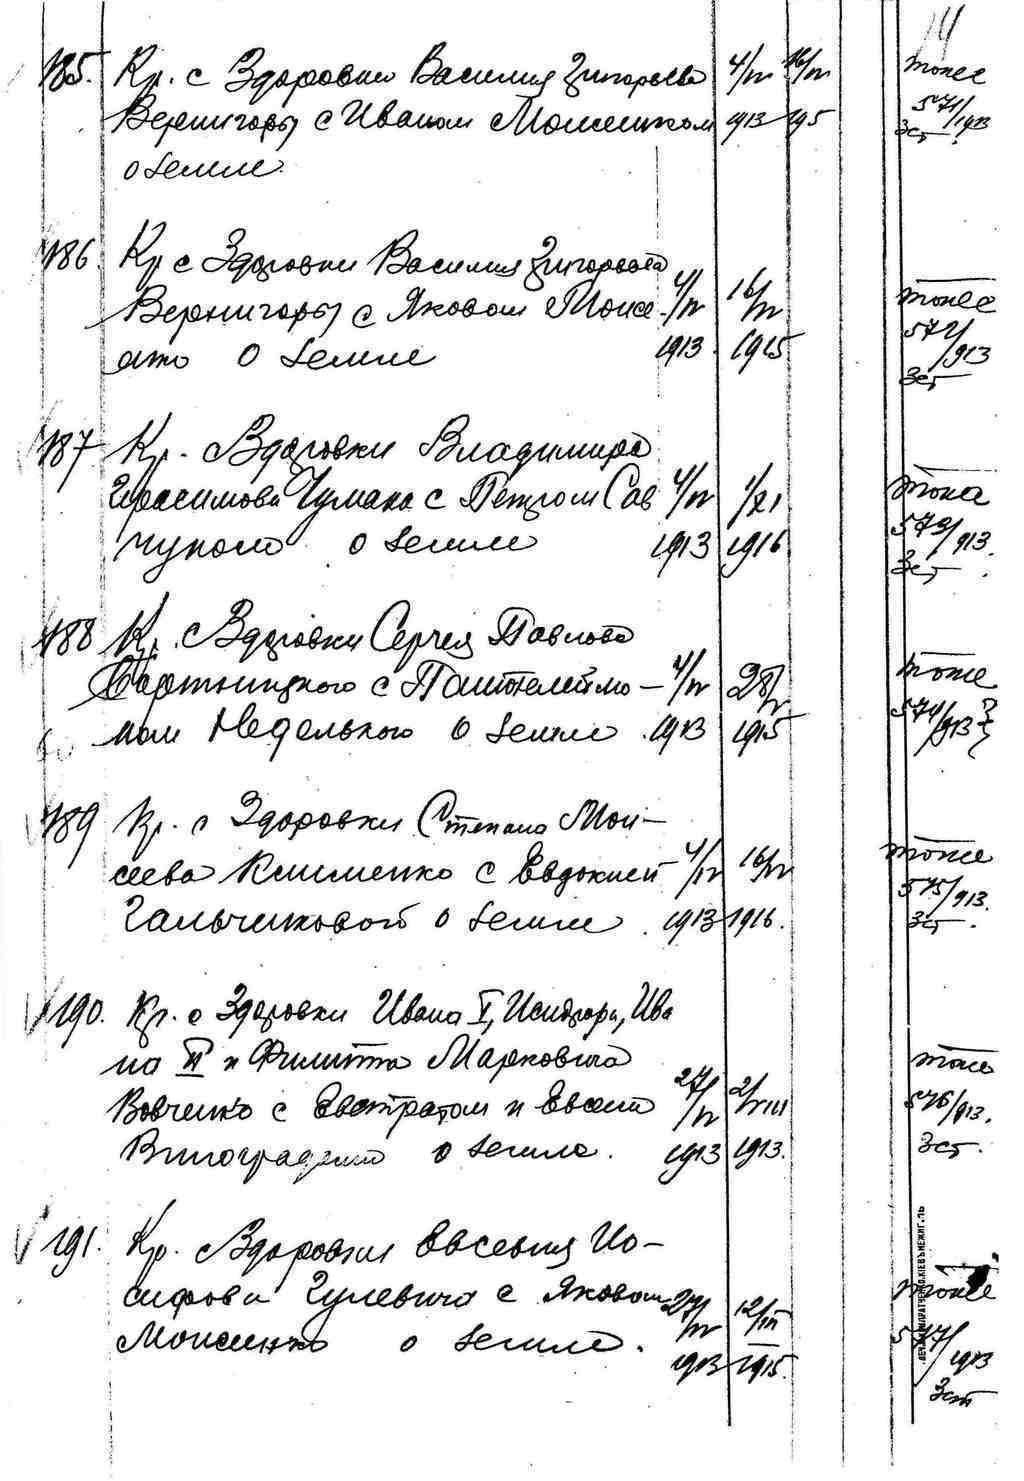 14
185. Кр. с Здоровки Василия Григорьева 4/IV 16/IV тоже
Вернигоры с Иваном Моисеенком 1913 1915 571/1913
о земле. 3 ст
186. Кр. с Здоровки Василия Григорьева
Вернигоры с Яковом Моисе- 4/IV 16/IV тоже
енко о земле 1913. 1915 572/913
3 ст
187 Кр. с Здоровки Владимира
Герасимова Чумака с Петром Сав 4/IV 1/XI тоже
чуком о земле 1913 1916 573/913.
3 ст.
188 Кр. с Здоровки Сергея Павлова
с Пантелеймо- 4/IV 28/V тоже
ном Неделького о земле. 1913 1915 574/913
189 Кр. с Здоровки Степана Мои-
сеева Клименко с Евдокией 4/IV 16/IV тоже
Гальчиковой о земле. 1913 1916. 575/913.
3 ст.
190. Кр. с Здоровки Ивана I, Исидора, Ива
на II и Филиппа Марковича тоже
Вовченко с Евстратом и Евсеем 27/IV 2/VIII 576/913.
о земле. 1913 1913. 3 ст.
191. Кр. с Здоровки Евсевия Ио-
сифова Гулевича с Яковом 27/IV 12/III тоже
Моисеенко о земле. 1913 1915. 577/1913
3 ст